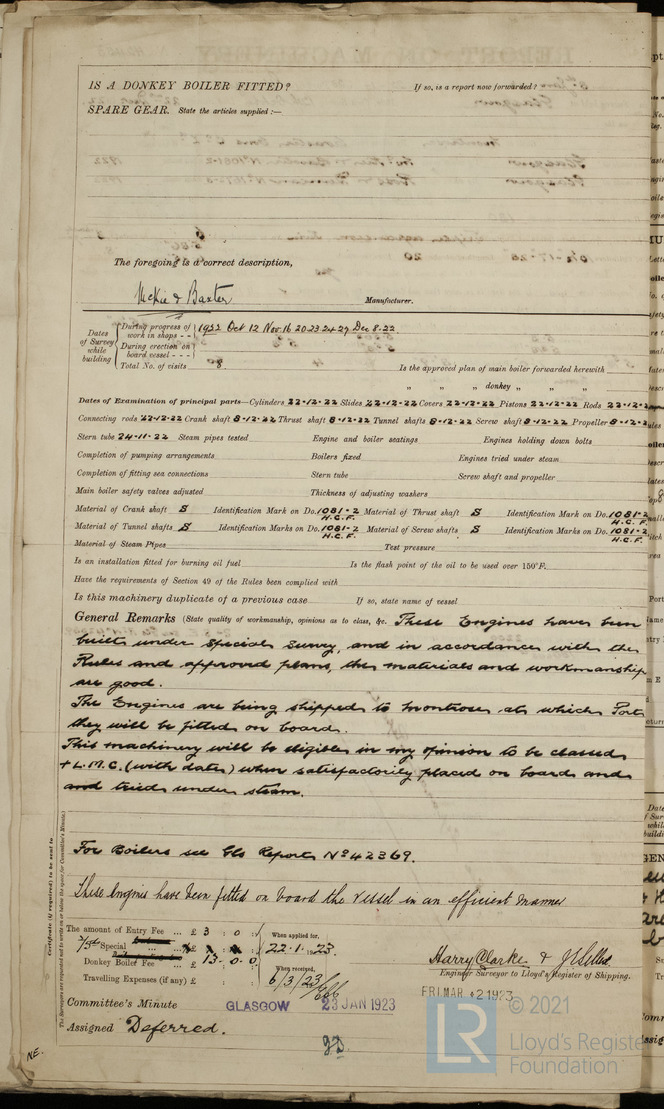 IS A DONKEY BOILER FITTED? If so, is a report now forwarded?
SPARE GEAR. State the articles supplied :—
The foregoing is a correct description,
McKie & Baxter Manufacturer.
Dates of Survey while building
During progress of work in shops - - 1922 Oct 12 Nov. 16 20 23 24 29 Dec 8. 22
During erection on board vessel - - -
Total No. of visits 8. Is the approved plan of main boiler forwarded herewith
" " " donkey " " "
Dates of Examination of principal parts—Cylinders 22-12-22 Slides 22-12-22 Covers 22-12-22 Pistons 22-12-22 Rods 22-12-2
Connecting rods 22-12-22 Crank shaft 8-12-22 Thrust shaft 8-12-22 Tunnel shafts 8-12-22 Screw shaft 8-12-22 Propeller 8-12-2
Stern tube 24-11-22 Steam pipes tested Engine and boiler seatings Engines holding down bolts
Completion of pumping arrangements Boilers fixed Engines tried under steam
Completion of fitting sea connections Stern tube Screw shaft and propeller
Main boiler safety valves adjusted Thickness of adjusting washers
Material of Crank shaft S Identification Mark on Do. 1081-2 H.C.F. Material of Thrust shaft S Identification Mark on Do. 1081-2 H.C.F.
Material of Tunnel shafts S Identification Marks on Do. 1081-2 H.C.F. Material of Screw shafts S Identification Marks on Do. 1081-2 H.C.F.
Material of Steam Pipes Test pressure
Is an installation fitted for burning oil fuel Is the flash point of the oil to be used over 150°F.
Have the requirements of Section 49 of the Rules been complied with
Is this machinery duplicate of a previous case If so, state name of vessel
General Remarks (State quality of workmanship, opinions as to class, &c. These Engines have been
built under special survey, and in accordance with the
Rules and approved plans, the materials and workmanship
are good.
The Engines are being shipped to Montrose at which Port
they will be fitted on board.
This machinery will be eligible in my opinion to be classed
+ L.M.C. (with date) when satisfactorily placed on board and
and tried under steam.
For Boilers see Gls Report No 42369.
These Engines have been fitted on board the vessel in an efficient manner
Certificate (if required) to be sent to
The Surveyors are requested not to write on or below the space for Committee's Minute.
The amount of Entry Fee ... £ 3 : 0 : When applied for,
3/5th Special ... £ 22.1.23.
Donkey Boiler Fee ... £ 13.0.0 When received,
Travelling Expenses (if any) £ 6/3/23
Harry Clarke &
Engineer Surveyor to Lloyd's Register of Shipping.
Committee's Minute GLASGOW 23 JAN 1923 FRI. MAR 2 1923
Assigned Deferred.
NE.
LR © 2021
Lloyd's Register
Foundation